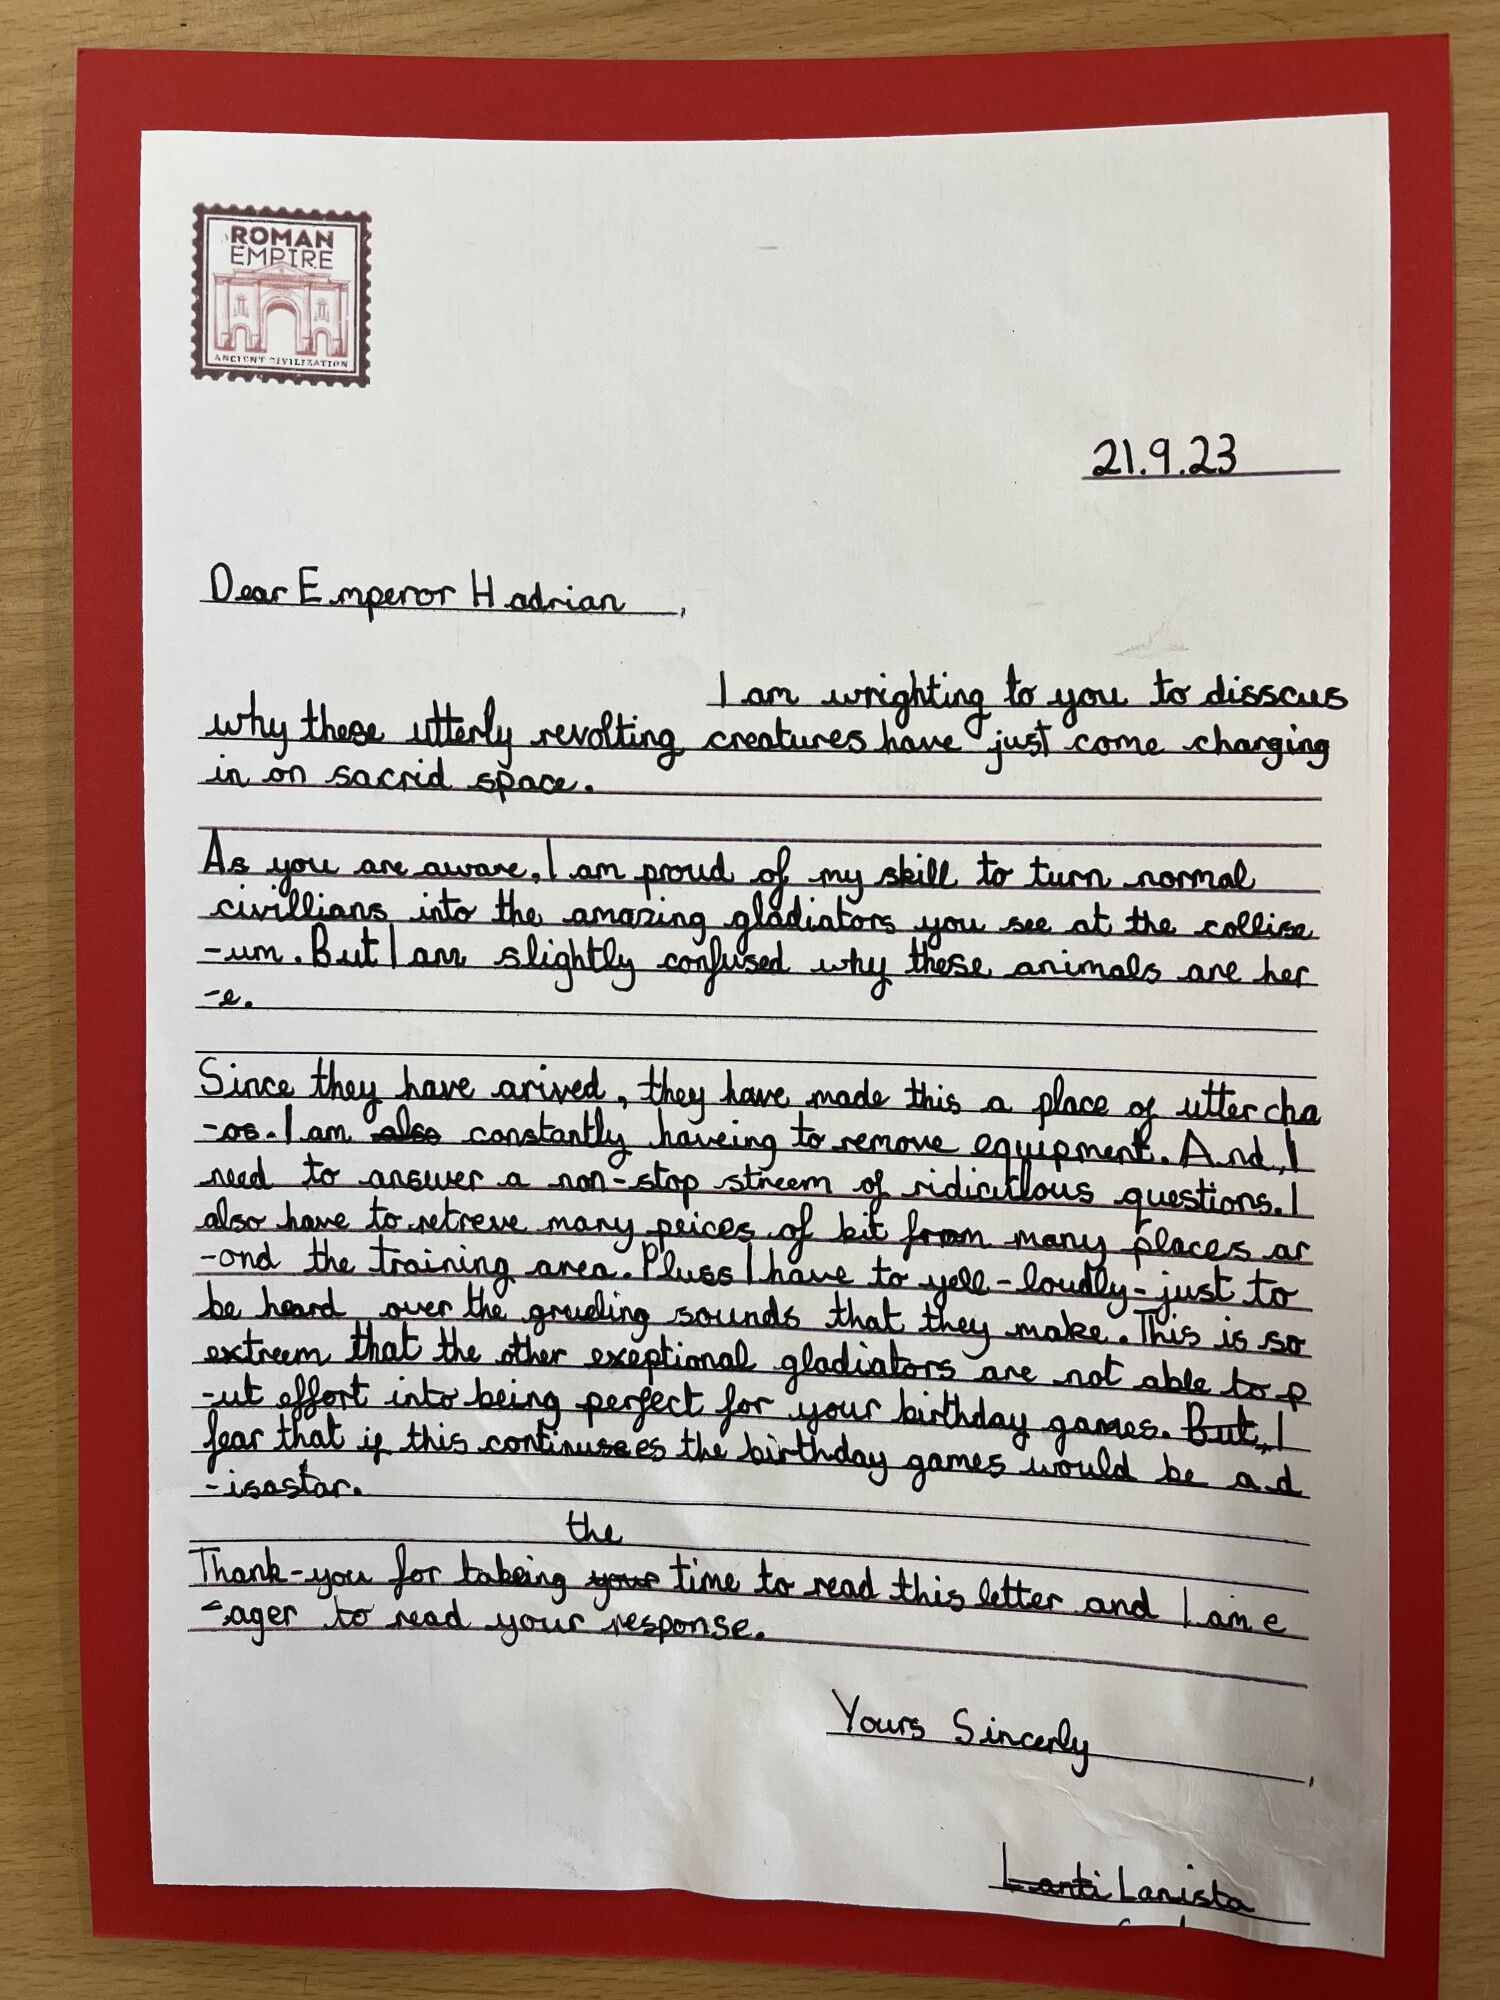 ROMAN
EMPIRE
ANCIENT CIVILIZATION
21.9.23
Dear Emperor Hadrian,
I am wrighting to you to disscus
why these utterly revolting creatures have just come charging
in on sacrid space.
As you are aware, I am proud of my skill to turn normal
civillians into the amazing gladiators you see at the collise
-um. But I am slightly confused why these animals are her
-e.
Since they have arived, they have made this a place of utter cha
-os. I am also constantly haveing to remove equipment. And, I
need to answer a non-stop streem of ridiculous questions. I
also have to retreve many peices of kit from many places ar
-ond the training area. Pluss I have to yell-loudly-just to
be heard over the grueling sounds that they make. This is so
extreem that the other exeptional gladiators are not able to p
-ut effort into being perfect for your birthday games. But, I
fear that if this continusees the birthday games would be a d
-isastar.
the
Thank-you for takeing your time to read this letter and I am e
-ager to read your response.
Yours Sincerly,
Lanti Lanista